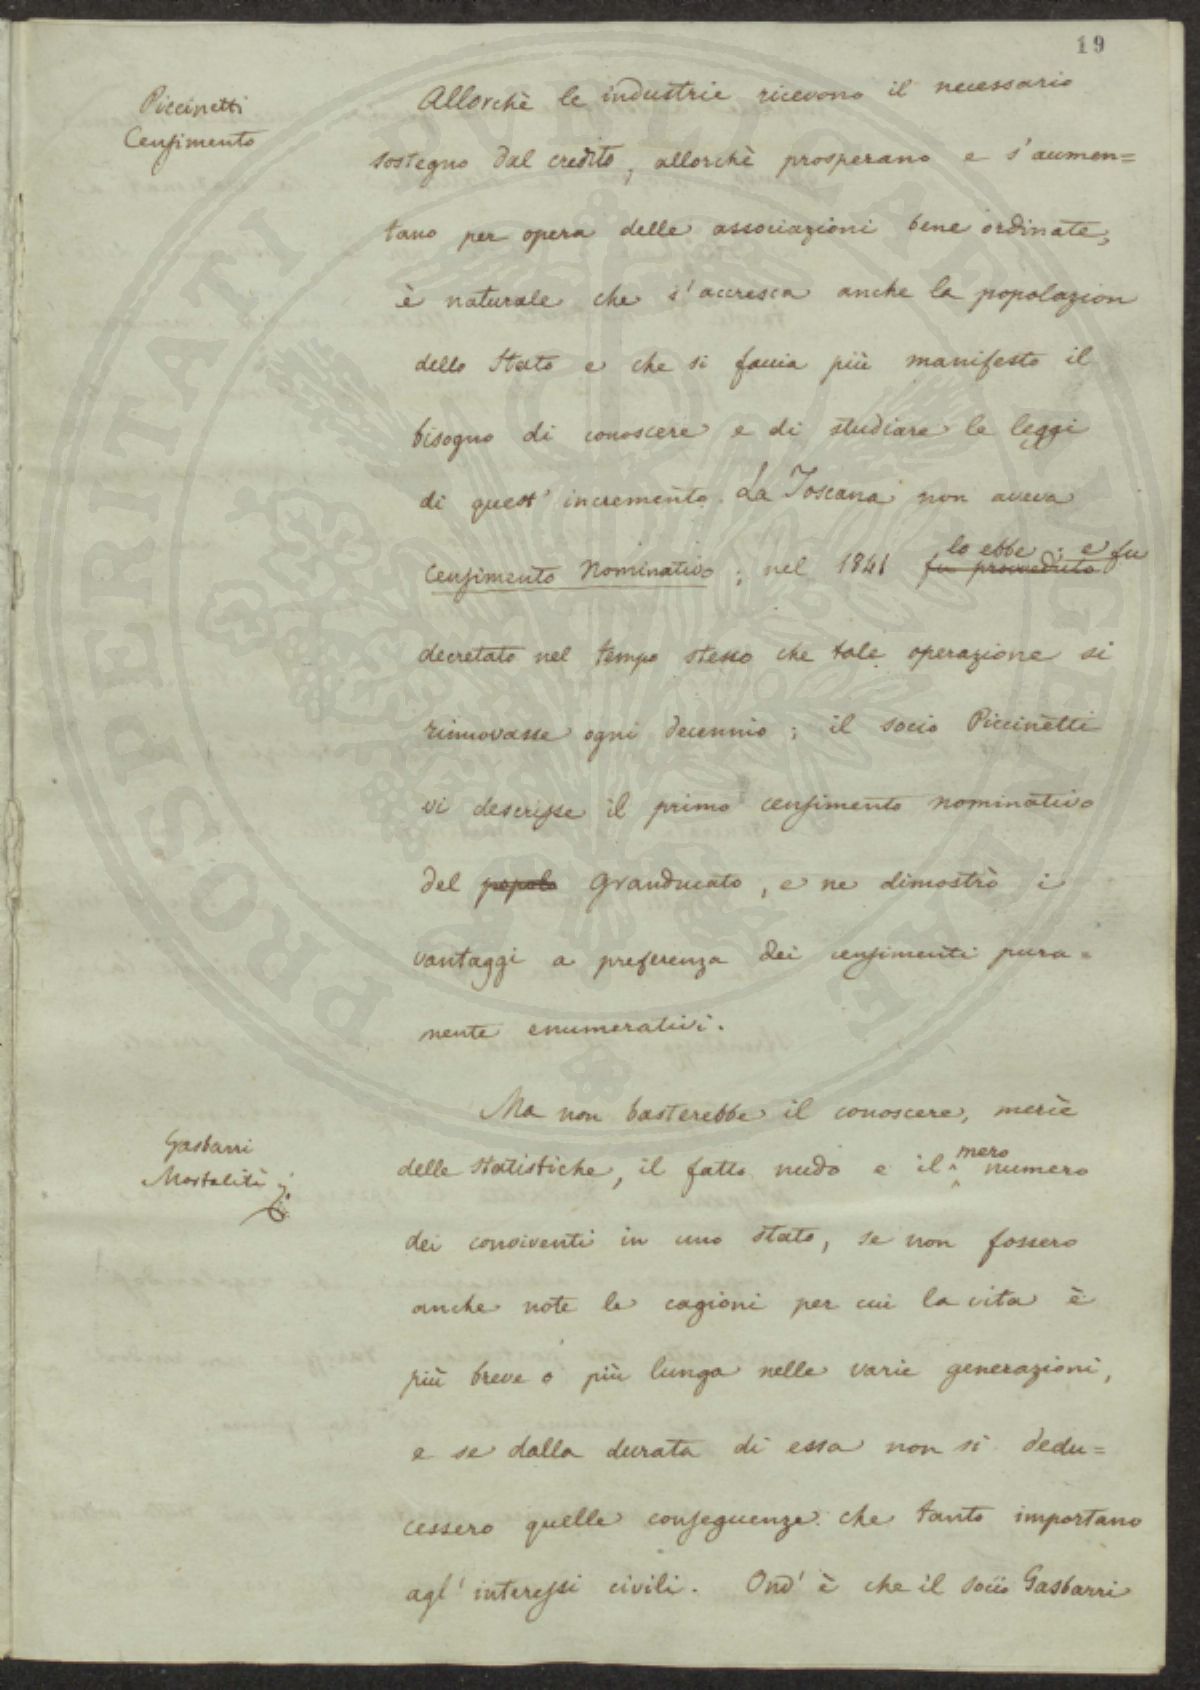 19
Piccinetti
Censimento
Allorchè le industrie ricevono il necessario
sostegno dal credito, allorchè prosperano e s'aumen=
tano per opera delle associazioni bene ordinate,
è naturale che s'accresca anche la popolazion
dello Stato e che si faccia più manifesto il
bisogno di conoscere e di studiare le leggi
di quest'incremento. La Toscana non aveva
lo ebbe; e fu
Censimento Nominativo; nel 1841 fu provveduto
decretato nel tempo stesso che tale operazione si
rinnovasse ogni decennio; il socio Piccinetti
vi descrisse il primo censimento nominativo
del popolo Granducato, e ne dimostrò i
vantaggi a preferenza dei censimenti pura=
mente enumerativi.
Ma non basterebbe il conoscere, mercè
Gasbarri
Mortalità
mero
delle statistiche, il fatto nudo e il numero
dei conviventi in uno stato, se non fossero
anche note le cagioni per cui la vita è
più breve o più lunga nelle varie generazioni,
e se dalla durata di essa non si dedu=
cessero quelle conseguenze che tanto importano
agl'interessi civili. Ond'è che il socio Gasbarri
PROSPERITATI PVBLICAE AVGENDAE